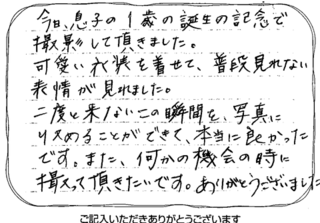 今日、息子の1歳の誕生の記念で
撮影して頂きました。
可愛い衣装を着せて、普段見れない
表情が見れました。
二度と来ないこの瞬間を、写真に
収めることができて、本当に良かった
です。また、何かの機会の時に
撮って頂きたいです。ありがとうございました
ご記入いただきありがとうございます